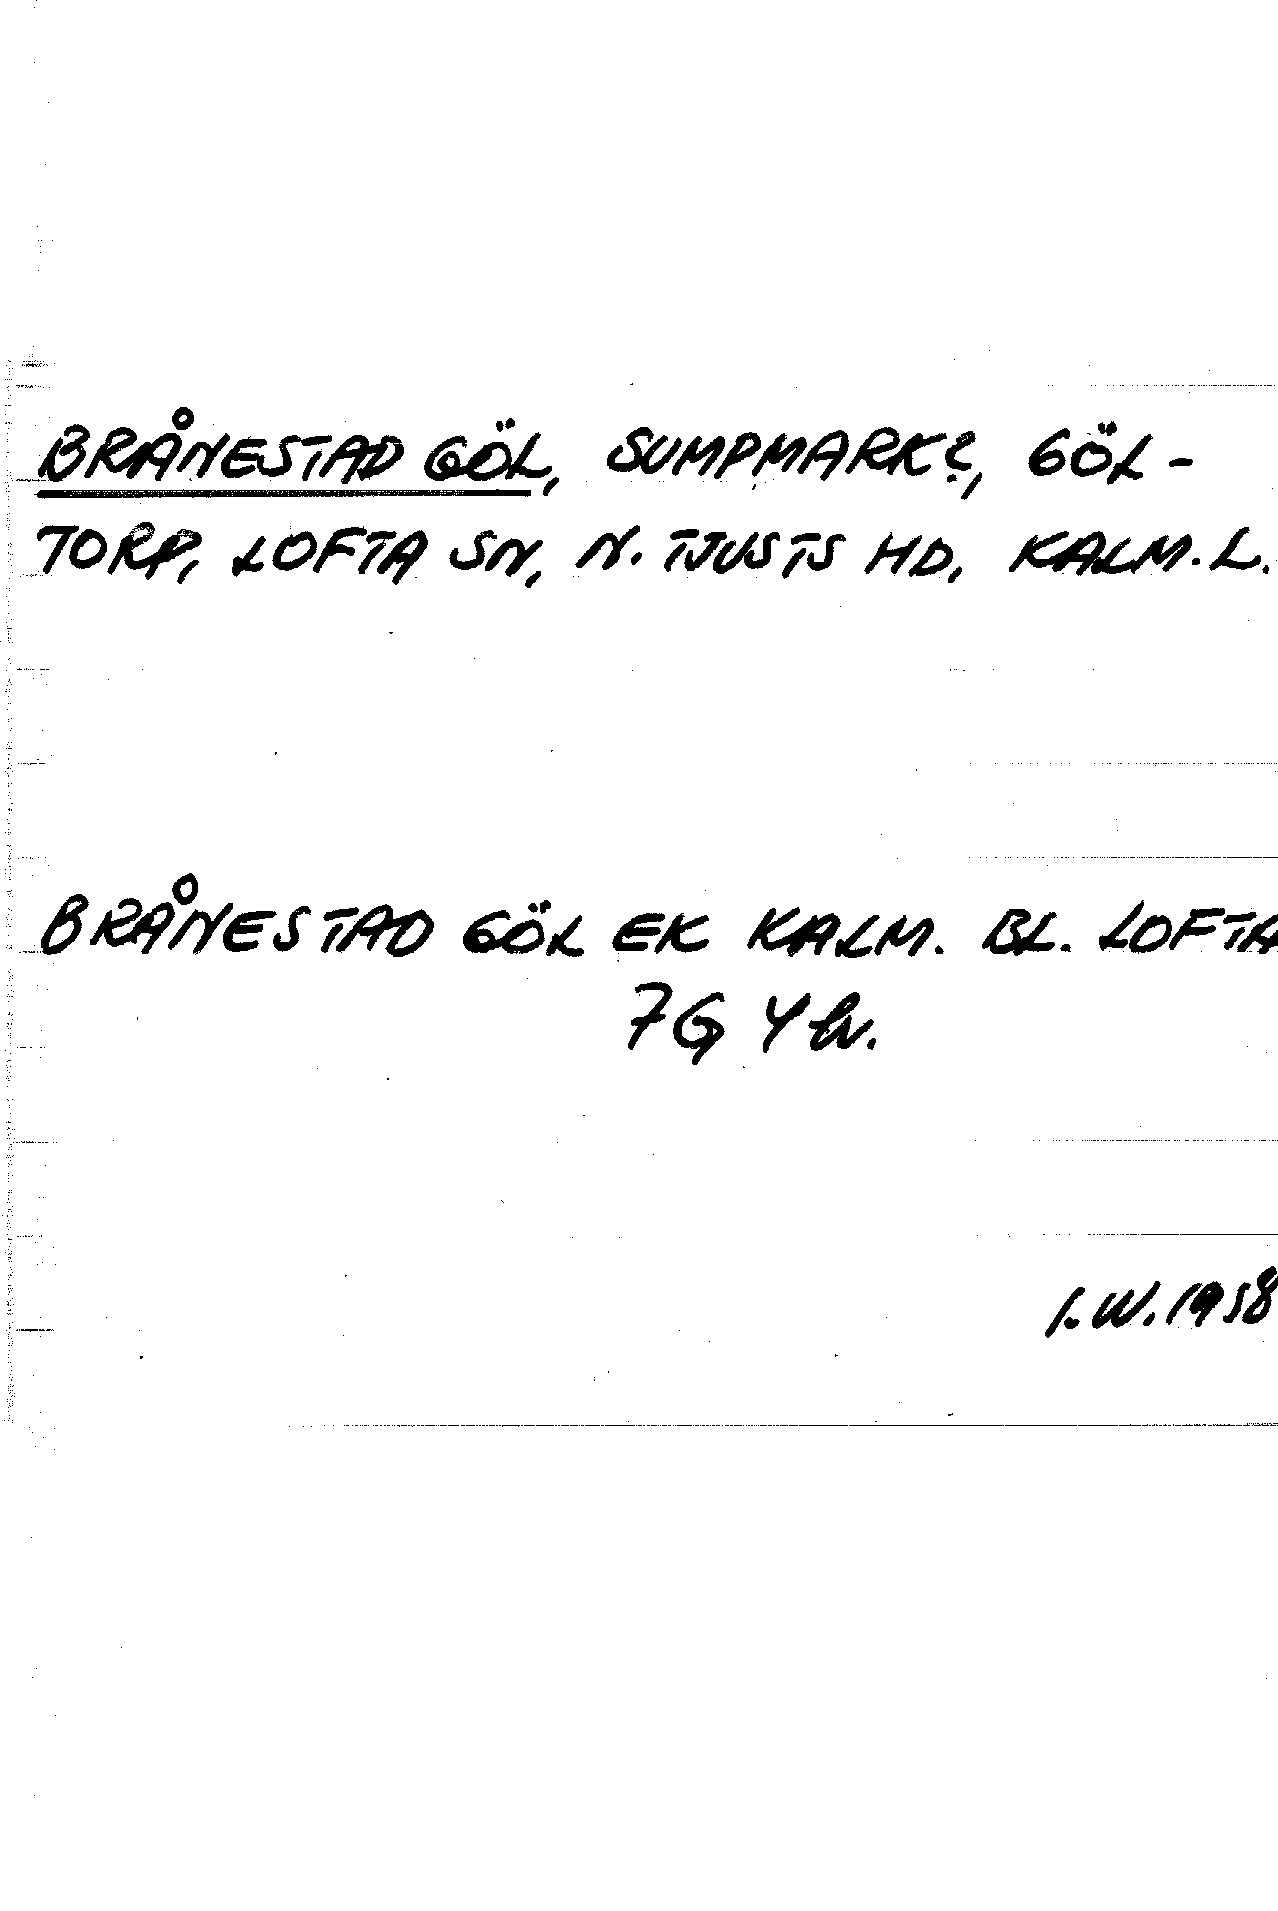 BRÅNESTAD GÖL, SUMPMARK?, GÖL-
TORP, LOFTA SN, N. TJUSTS HD, KALM. L.
BRÅNESTAD GÖL EK KALM. BL. LOFTA
7G 4h.
I.W. 1958